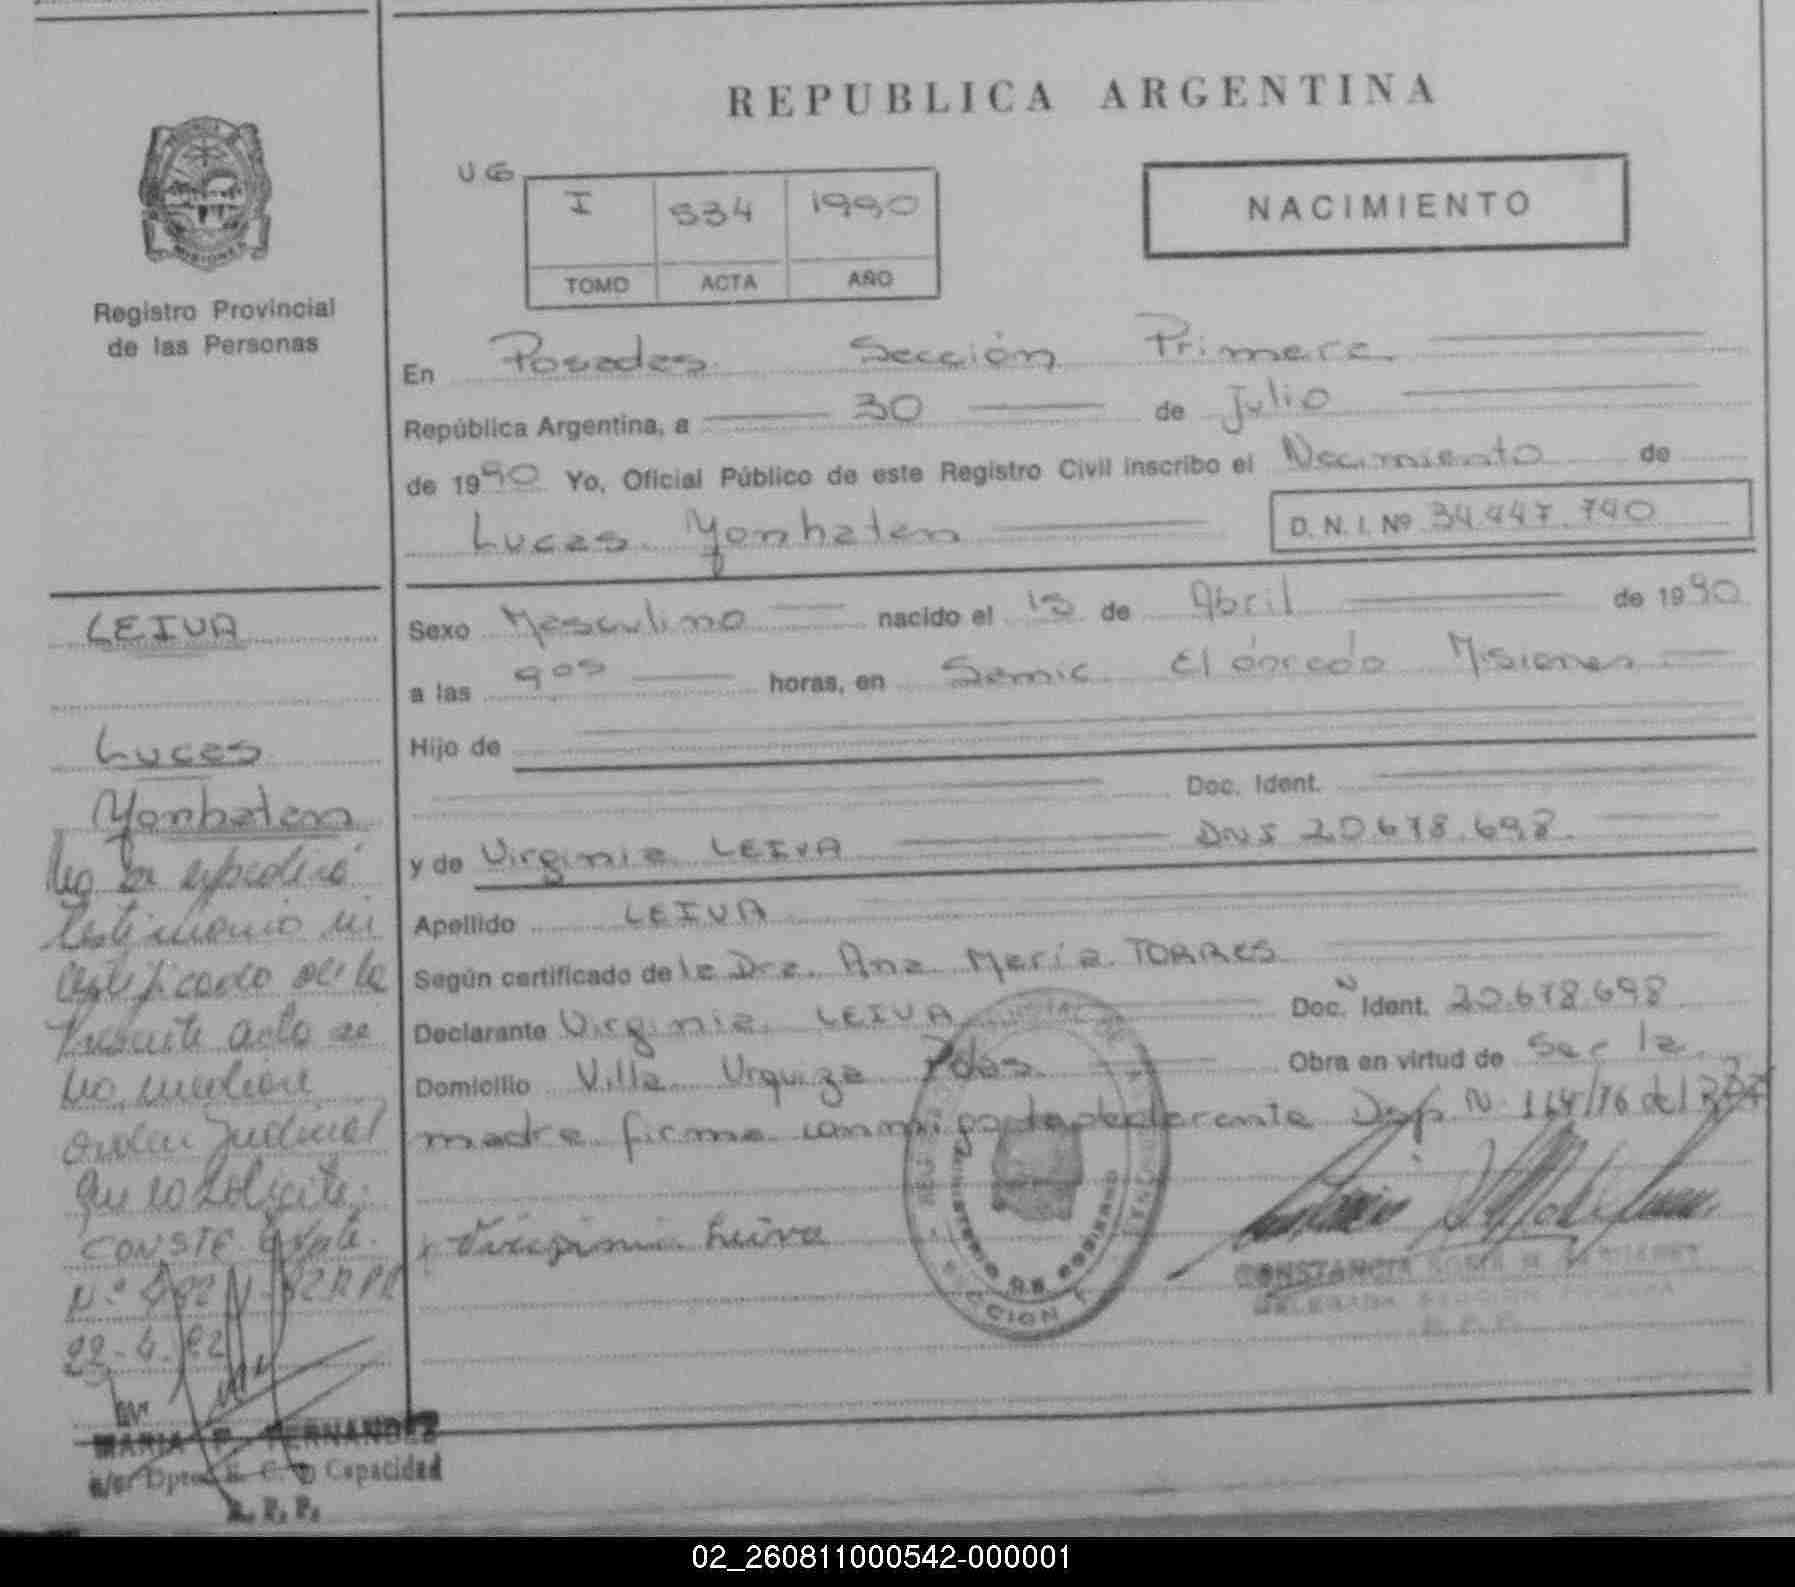 REPUBLICA ARGENTINA
MISIONES
Registro Provincial
de las Personas
I 534 1990
TOMO ACTA AÑO
NACIMIENTO
En Posadas Sección Primera
República Argentina, a 30 de Julio
de 1990 Yo, Oficial Público de este Registro Civil inscribo el Nacimiento de
Lucas Yonhatan D. N. I. Nº 34.447.740
Sexo Masculino nacido el de Abril de 1990
a las 9 05 horas, en Samic El dorado Misiones
Hijo de
Doc. Ident.
y de Virginia LEIVA DNI 20.678.698.
Apellido LEIVA
Según certificado de la Dra. Ana María TORRES
Declarante Virginia LEIVA Doc. Ident. 20.678.698
Domicilio Villa Urquiza Pdas Obra en virtud de Sec 1a.
madre firma conmigo la declarante Disp. N 114/76 del
Virginia Leiva
LEIVA
Lucas
Yonhatan
No se expedirá
testimonio ni
certificado de la
presente acta si
no mediare
orden Judicial
que lo solicite.
CONSTE
22-4-92
MINISTERIO DE GOBIERNO
SECCION 1
CONSTANCIA
DELEGADA SECCION PRIMERA
R. P. P.
MARIA F. FERNANDEZ
a/c Dpto. E. C. y Capacidad
R. P. P.
02_260811000542-000001